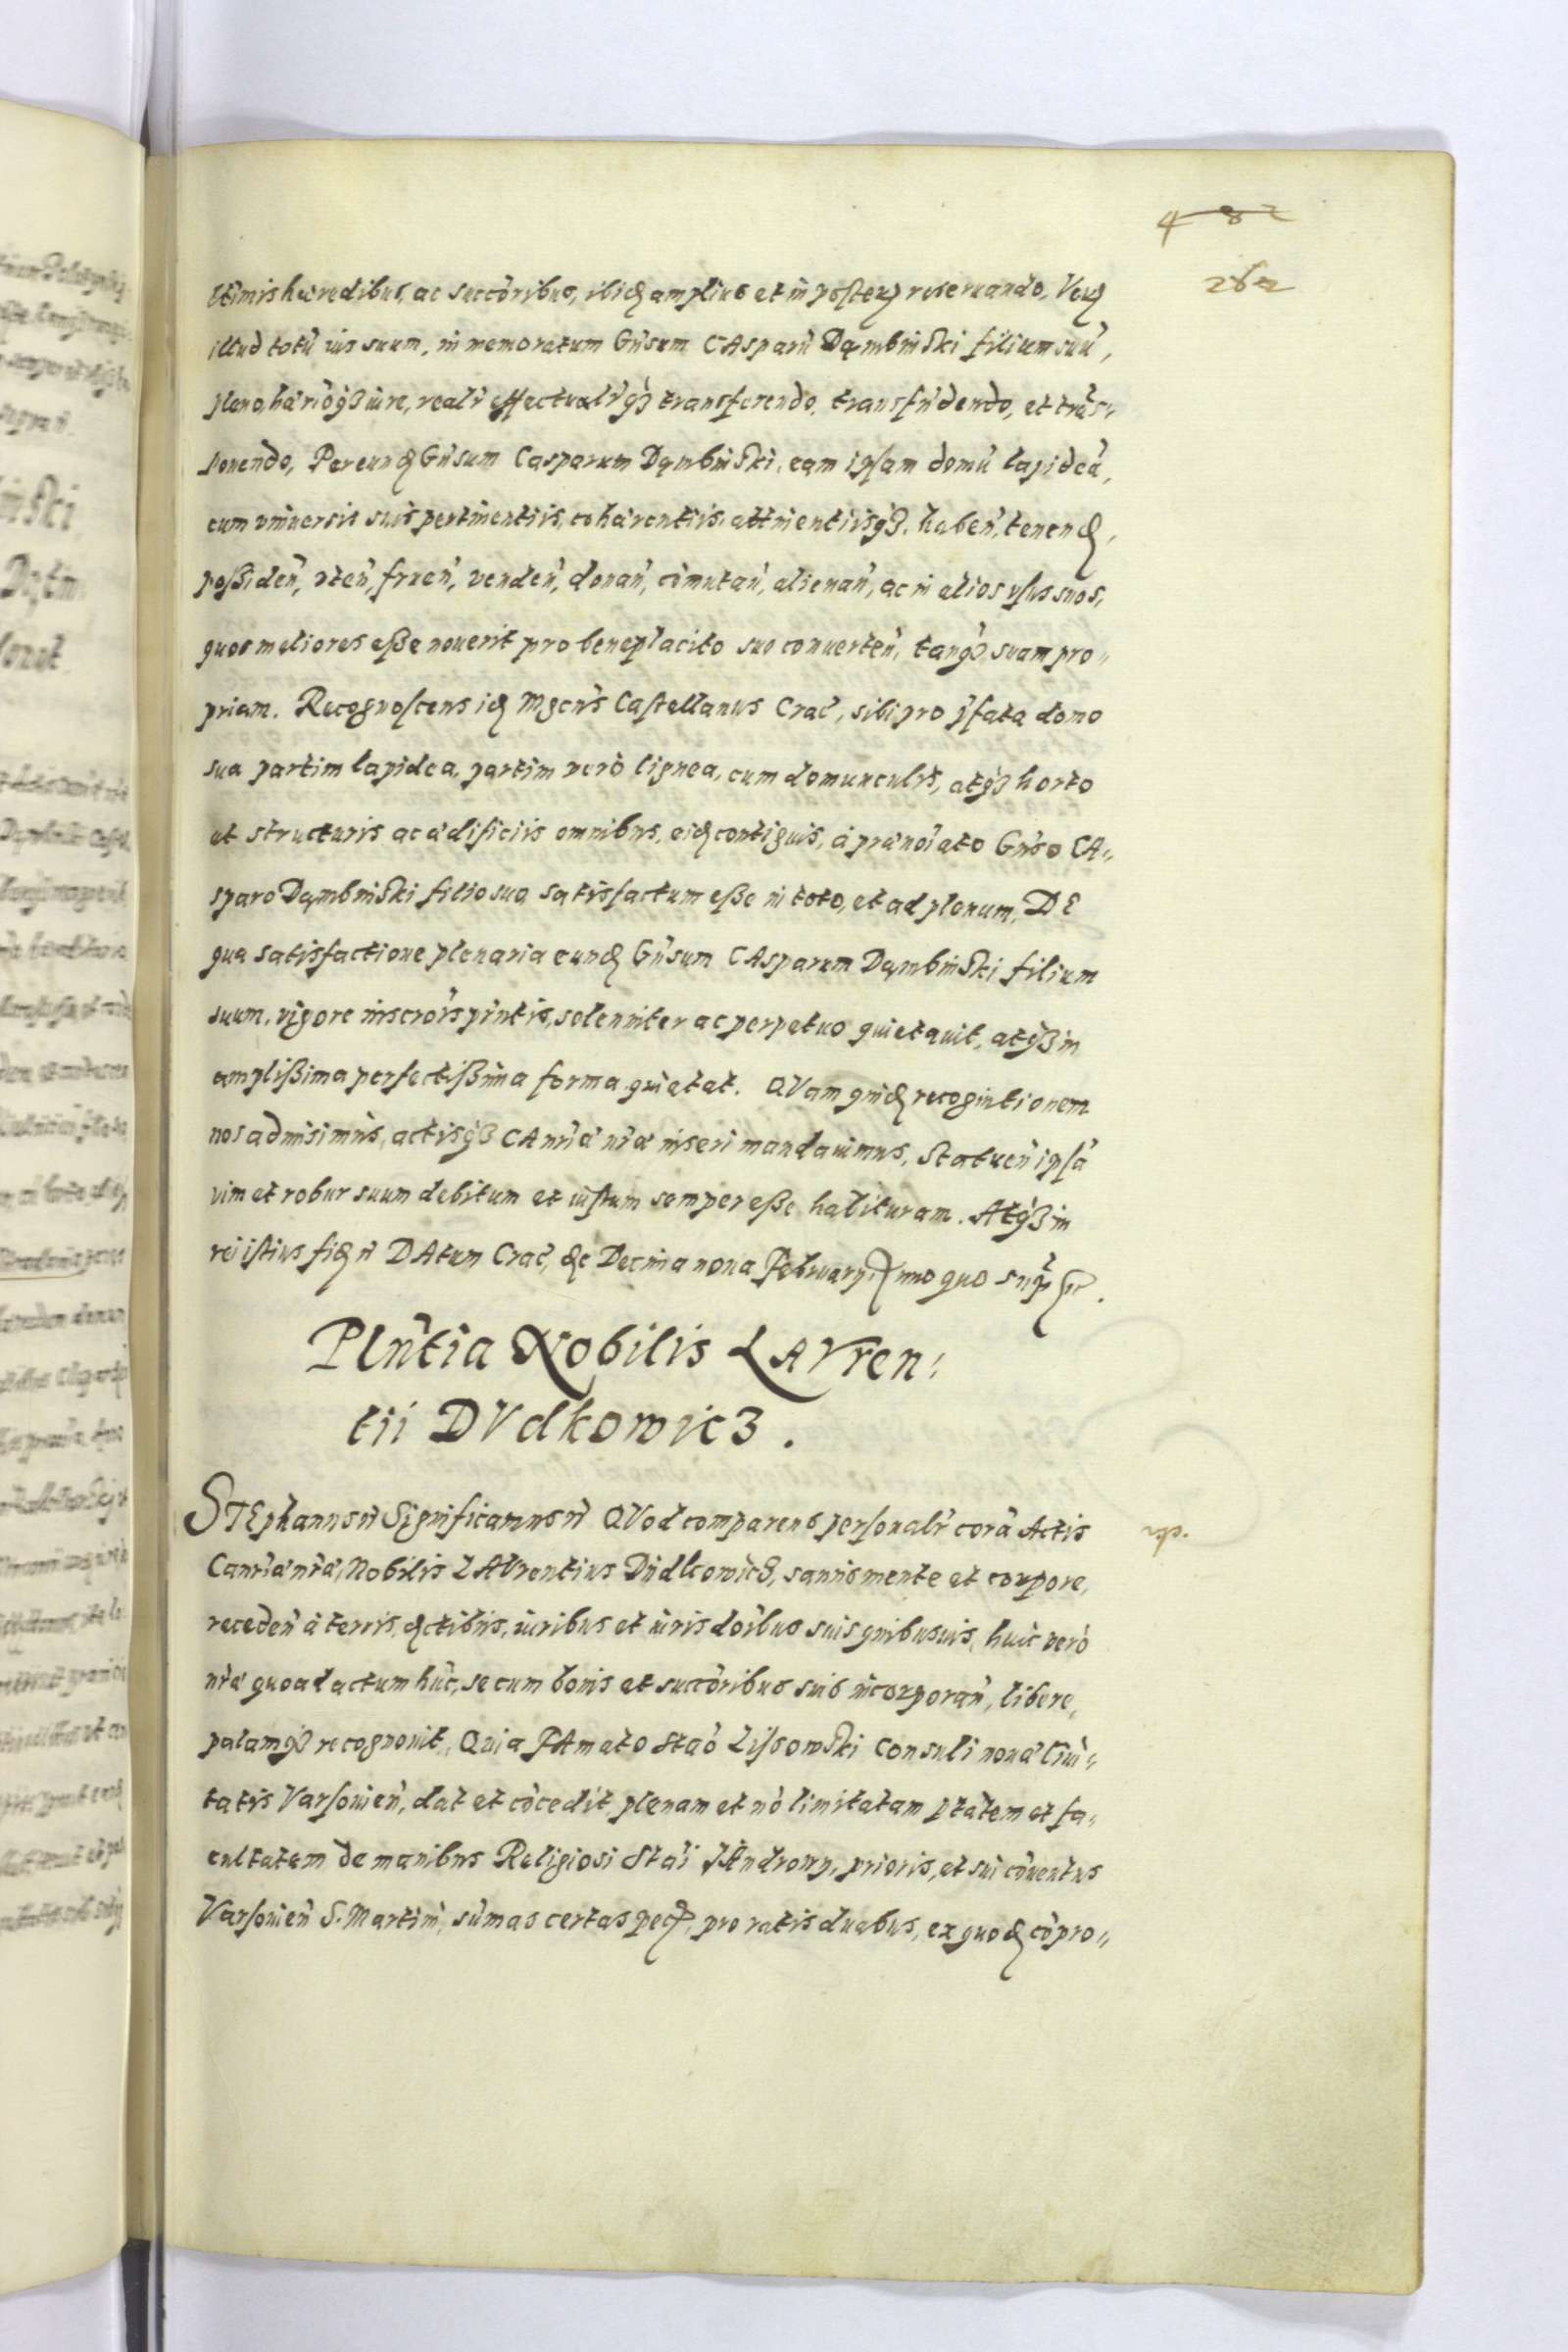 482
262
ltimis hæredibus, ac succoribus, ibidē amplius et in posterū reseruando, Verū
illud totū ius suum, in memoratum Gn̄sum CAsparū Dąmbinski filium suū,
pleno, hær̄iōq3 iure, real̄r effectual̄rq3 transferendo, transfūdendo, et trās=
ponendo, Per eund Gn̄sum Casparum Dąmbinski, eam ipsam domū lapideā,
cum vniuersis suis pertinentiis, cohærentiis, attinentiisq3, haben̄, tenend,
possiden̄, vten̄, fruen̄, venden̄, donan̄, cōmutan̄, alienan̄, ac in alios vsus suos,
quos meliores esse nouerit pro beneplacito suo conuerten̄, tanq3 suam pro=
priam. Recognoscens id Mgcn̄s Castellanus Crac̄, sibi pro p̄fata domo
sua partim lapidea, partim verò lignea, cum domunculis, atq3 horto
et structuris ac ædificiis omnibus, eid contiguis, à prænōiato Gn̄so CA=
sparo Dąmbinski filio suo satisfactum esse in toto, et ad plenum, DE
qua satisfactione plenaria eund Gn̄sum CAsparum Dąmbinski filium
suum, vigore inscrōis pn̄tis, solenniter ac perpetuo quietauit, atq3 in
amplissima perfectissima forma quietat. QVam quid recognitionem
nos admisimus, actisq3 CAnr̄iæ nr̄æ inseri mandauimus, Statuen̄ ipsā
vim et robur suum debitum et iustum semper esse habituram. Atq3 in
rei istius fid n̄ DAtum Crac̄, &c Decima nona Februarij, Anno quo supr̄
Pln̄tia Nobilis LAVren=
tii DVdkowic3.
STEphannus n̄ Significamus n̄ QVod comparens personal̄r corā Actis
Canr̄iæ nr̄æ, Nobilis LAVrentius Dudkowic3, sanus mente et corpore,
receden̄ à terris, dctibus, iuribus et iurisdōibus suis quibusuis, huic verò
nr̄æ quoad actum hūc, se cum bonis et succōribus suis incorporan̄, libere,
palamq3 recognouit, Quia FAmato Staō Lissowski Consuli nouæ Ciui=
tatis Varsouien̄, dat et cōcedit plenam et nō limitatam ptātem et fa=
cultatem de manibus Religiosi Stāi Androwy, prioris, et sui cōuentus
Varsouien̄ S. Martini, sūmas certas pec̄, pro ratis duabus, ex quod cōpro=